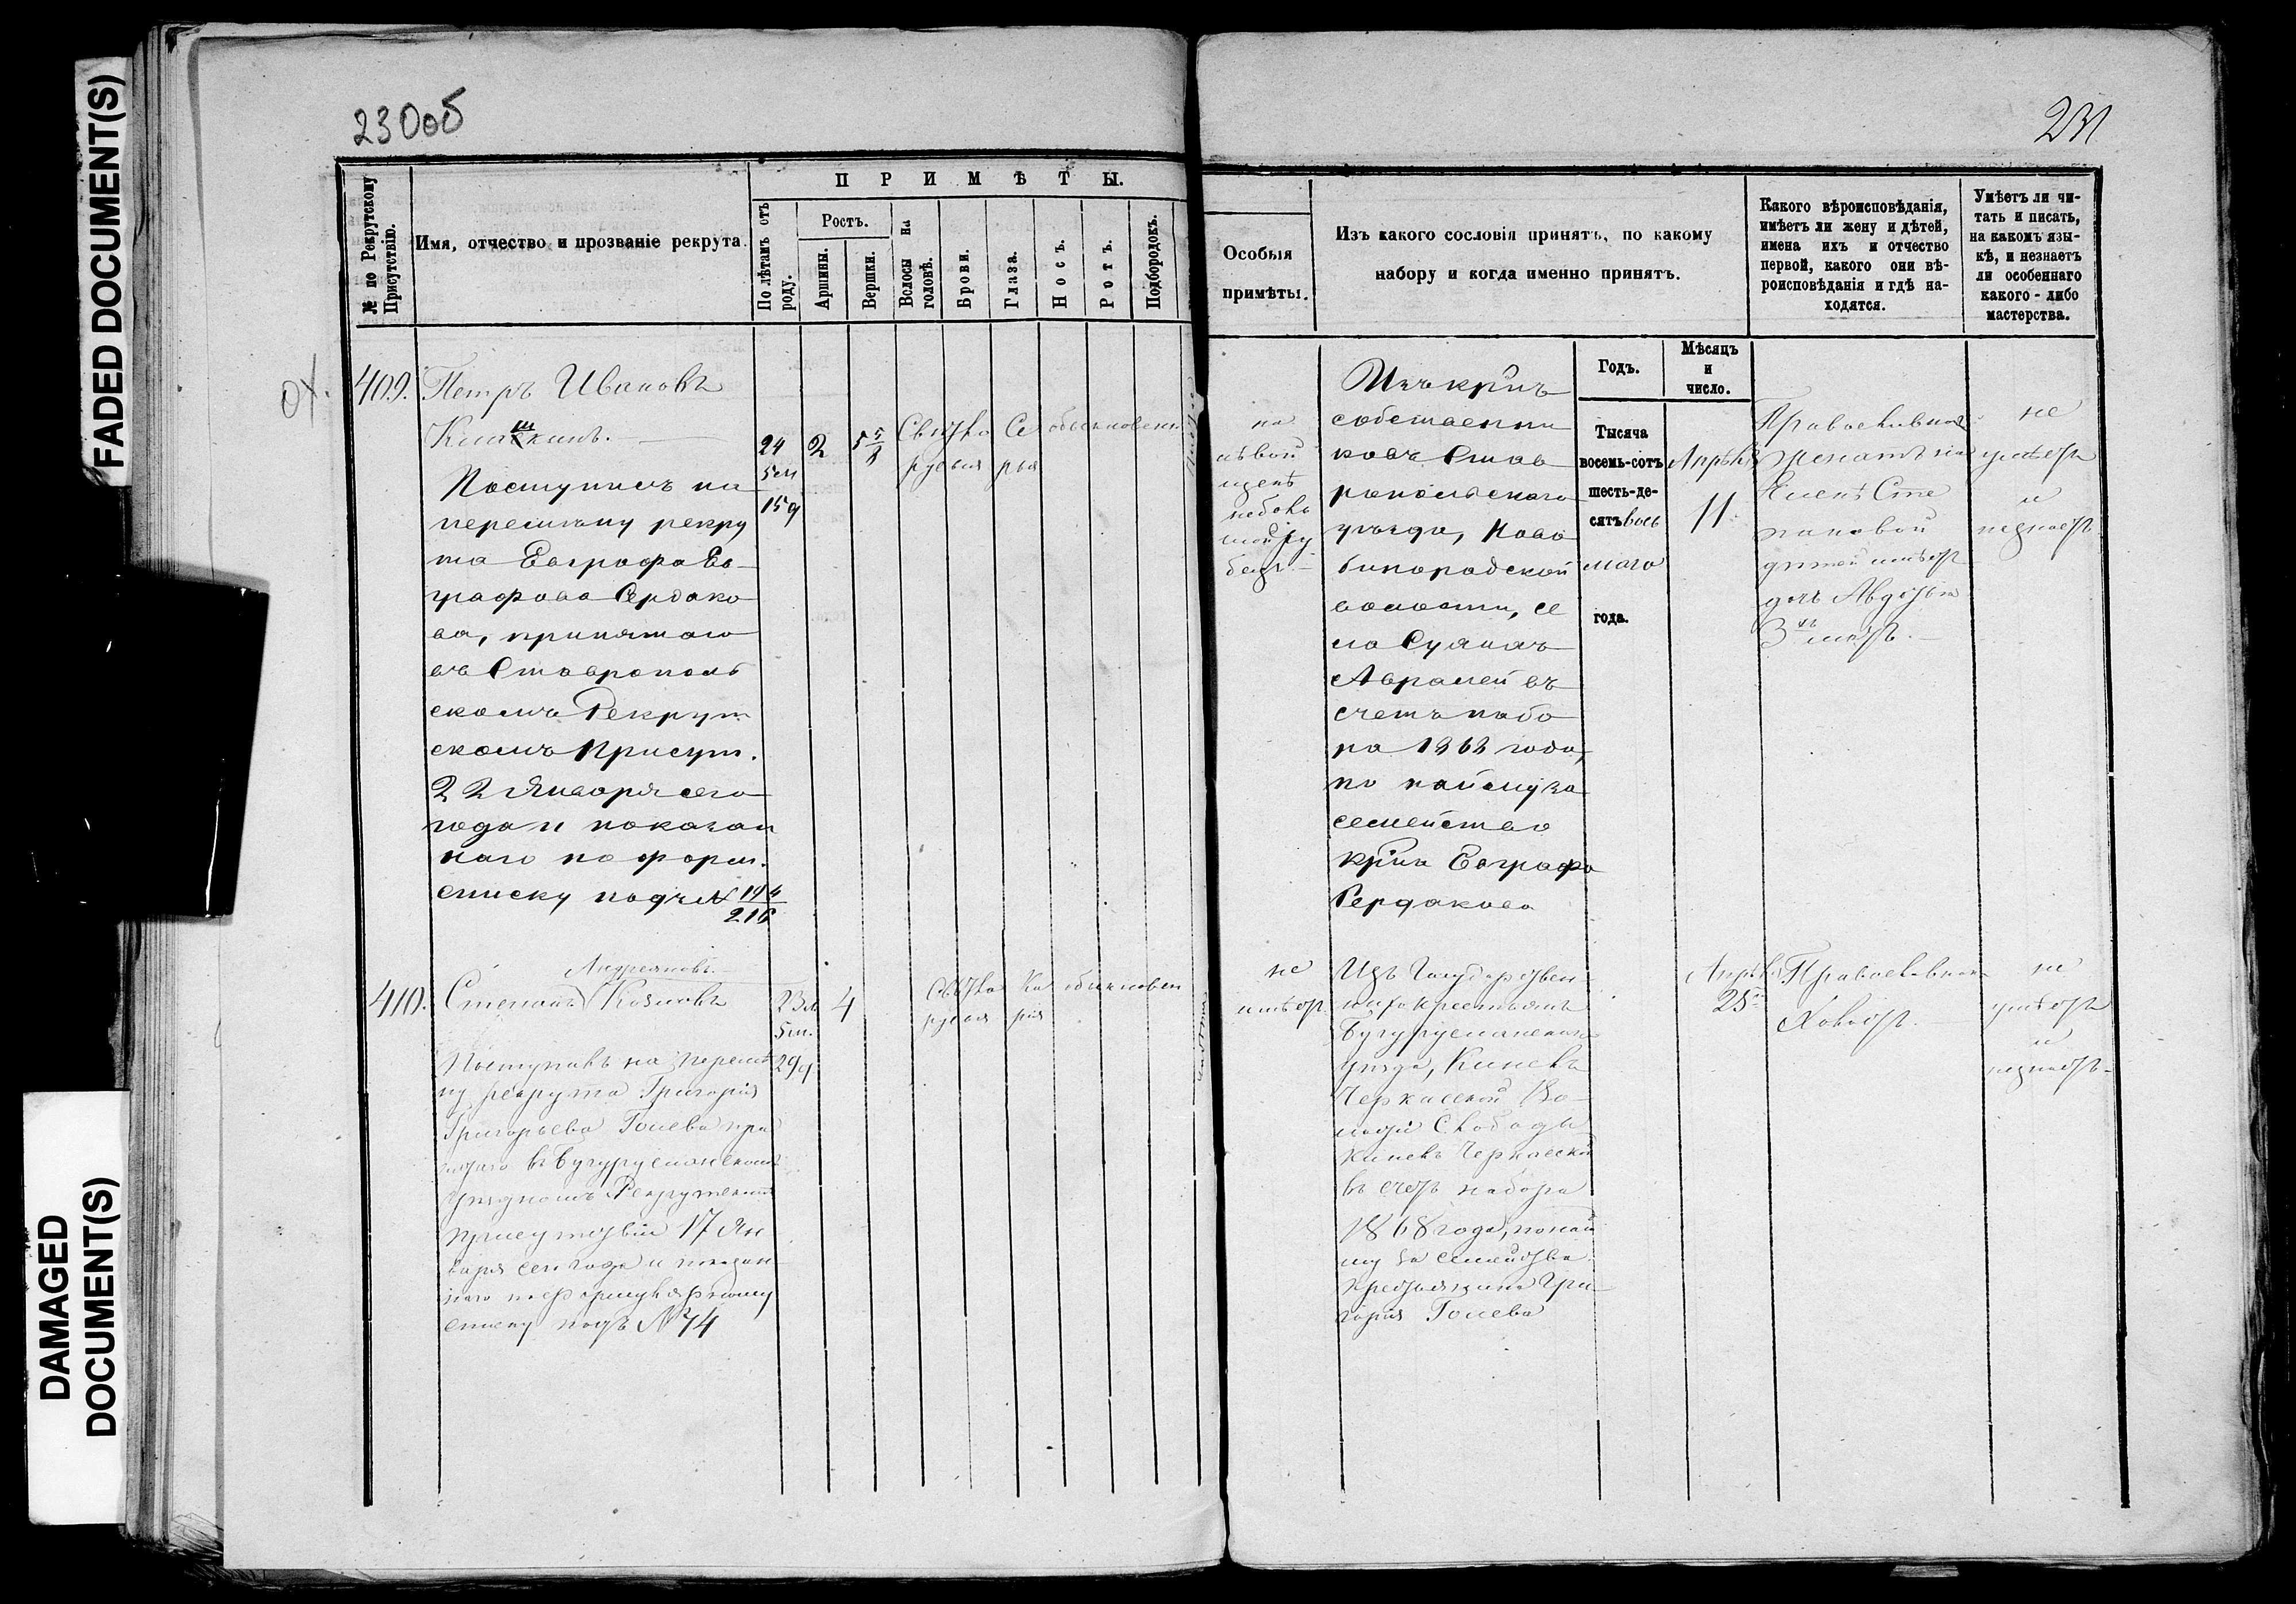 FADED DOCUMENT(S)
DAMAGED
DOCUMENT(S)
230об
231
№ по Рекрутскому
Присутствію.
Имя, отчество и прозваніе рекрута.
ПРИМѢТЫ.
По лѣтамъ отъ
роду.
Ростъ.
Аршины.
Вершки.
Волосы на
головѣ.
Брови.
Глаза.
Носъ.
Ротъ.
Подбородокъ.
Особыя
примѣты.
Изъ какого сословія принятъ, по какому
набору и когда именно принятъ.
Какого вѣроисповѣданія,
имѣетъ ли жену и дѣтей,
имена ихъ и отчество
первой, какого они вѣ-
роисповѣданія и гдѣ на-
ходятся.
Умѣетъ ли чи-
тать и писать,
на какомъ язы-
кѣ, и незнаетъ
ли особеннаго
какого-либо
мастерства.
409.
Петръ Ивановъ
Поступилъ на
перемѣну рекру
та Евграфа Ев-
графова Сердако
ва, принятаго
въ Ставрополь
скомъ Рекрут
скомъ Присут.
22 Января сего
года и показан
наго по форм.
списку подъ № 194
216
24
5 м
15 д
2
5 5/8
Свѣтло
русыя
Се
рыя
обыкновен
на
лѣвой
щекѣ
неболь
шой ру
бецъ.
Изъ крпъ
собственни
ковъ Став
ропольскаго
уѣзда, Ново
бинарадской
волости, се
ла
въ
счетъ набо
ра 1868 года,
по найму за
семейство
крпна Евграфа
Сердакова
Годъ.
Мѣсяцъ
и
число.
Тысяча
восемь-сотъ
шесть-де-
сятъ вось
маго
года.
Апрѣля
11.
Православнаго
женатъ на
Еленѣ Сте
пановой
дѣтей имѣетъ
дочь Авдотью
3хъ лѣтъ.
не
умѣетъ
и
незнаетъ
410.
Андреяновъ
Степанъ Козловъ
Поступилъ на перемѣ
ну рекрута Григорія
Григорьева Голева при
нятаго въ Бугурусланскомъ
уѣздномъ Рекрутскомъ
присутствіи 17 Ян
варя сего года и показан
наго по формулярному
списку подъ № 74
23 л
5 м.
29 д
4
Свѣтло
русыя
Ка
рія
обыкновен
не
имѣетъ
Изъ Государствен
ныхъ крестьянъ
Бугурусланскаго
уѣзда, Кинель
Черкасской Во-
лости Слободы
Кинель Черкасской
въ счетъ набора
1868 года, по най
му за семейство
крестьянина Гри-
горія Голева
Апрѣля
25
Православнаго
Холостъ.
не
умѣетъ
и
незнаетъ